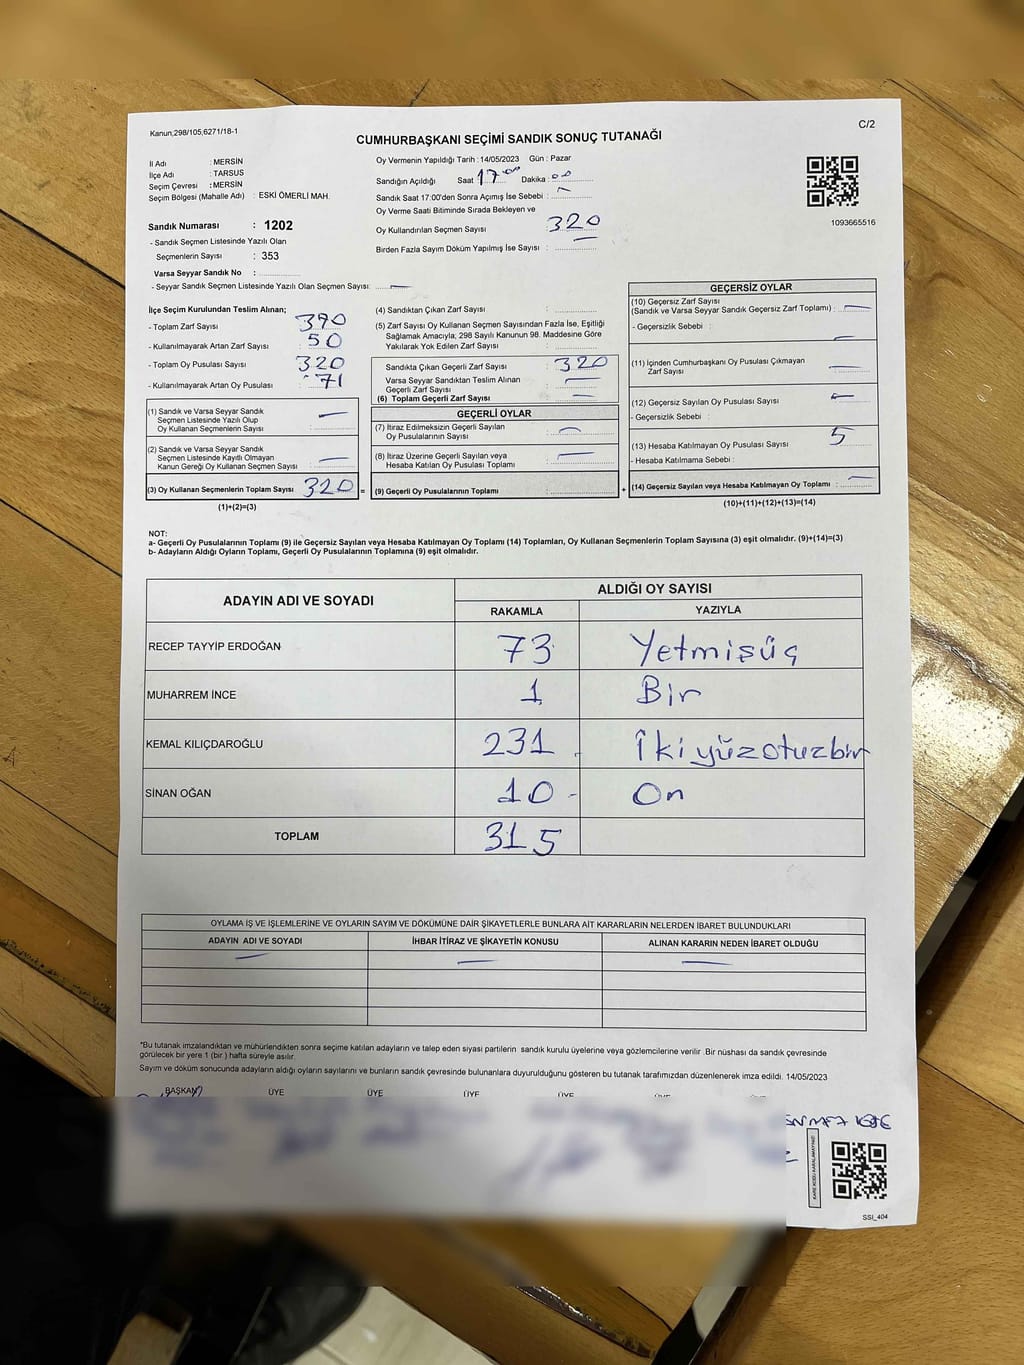 Kanun,298/105,6271/18-1
C/2
CUMHURBAŞKANI SEÇİMİ SANDIK SONUÇ TUTANAĞI
İl Adı : MERSİN
İlçe Adı : TARSUS
Seçim Çevresi : MERSİN
Seçim Bölgesi (Mahalle Adı) : ESKİ ÖMERLİ MAH.
Sandık Numarası : 1202
- Sandık Seçmen Listesinde Yazılı Olan
Seçmenlerin Sayısı : 353
Varsa Seyyar Sandık No :
- Seyyar Sandık Seçmen Listesinde Yazılı Olan Seçmen Sayısı: —
Oy Vermenin Yapıldığı Tarih : 14/05/2023 Gün : Pazar
Sandığın Açıldığı Saat 17 00 Dakika : 00
Sandık Saat 17:00'den Sonra Açımış İse Sebebi :
Oy Verme Saati Bitiminde Sırada Bekleyen ve
Oy Kullandırılan Seçmen Sayısı : 320
Birden Fazla Sayım Döküm Yapılmış İse Sayısı : —
1093665516
İlçe Seçim Kurulundan Teslim Alınan;
- Toplam Zarf Sayısı : 390
- Kullanılmayarak Artan Zarf Sayısı : 50
- Toplam Oy Pusulası : 320
- Kullanılmayarak Artan Oy Pusulası : 71
(1) Sandık ve Varsa Seyyar Sandık
Seçmen Listesinde Yazılı Olup
Oy Kullanan Seçmenlerin Sayısı : —
(2) Sandık ve Varsa Seyyar Sandık
Seçmen Listesinde Kayıtlı Olmayan
Kanun Gereği Oy Kullanan Seçmen Sayısı : —
(3) Oy Kullanan Seçmenlerin Toplam Sayısı : 320
(1)+(2)=(3)
(4) Sandıktan Çıkan Zarf Sayısı :
(5) Zarf Sayısı Oy Kullanan Seçmen Sayısından Fazla İse, Eşitliği
Sağlamak Amacıyla; 298 Sayılı Kanunun 98. Maddesine Göre
Yakılarak Yok Edilen Zarf Sayısı :
Sandıkta Çıkan Geçerli Zarf Sayısı : 320
Varsa Seyyar Sandıktan Teslim Alınan
Geçerli Zarf Sayısı : —
(6) Toplam Geçerli Zarf Sayısı : —
GEÇERLİ OYLAR
(7) İtiraz Edilmeksizin Geçerli Sayılan
Oy Pusulalarının Sayısı : —
(8) İtiraz Üzerine Geçerli Sayılan veya
Hesaba Katılan Oy Pusulası Toplamı : —
= (9) Geçerli Oy Pusulalarının Toplamı :
GEÇERSİZ OYLAR
(10) Geçersiz Zarf Sayısı
(Sandık ve Varsa Seyyar Sandık Geçersiz Zarf Toplamı) : —
- Geçersizlik Sebebi : —
(11) İçinden Cumhurbaşkanı Oy Pusulası Çıkmayan
Zarf Sayısı : —
(12) Geçersiz Sayılan Oy Pusulası Sayısı : —
- Geçersizlik Sebebi :
(13) Hesaba Katılmayan Oy Pusulası Sayısı : 5
- Hesaba Katılmama Sebebi :
+ (14) Geçersiz Sayılan veya Hesaba Katılmayan Oy Toplamı : —
(10)+(11)+(12)+(13)=(14)
NOT:
a- Geçerli Oy Pusulalarının Toplamı (9) ile Geçersiz Sayılan veya Hesaba Katılmayan Oy Toplamı (14) Toplamları, Oy Kullanan Seçmenlerin Toplam Sayısına (3) eşit olmalıdır. (9)+(14)=(3)
b- Adayların Aldığı Oyların Toplamı, Geçerli Oy Pusulalarının Toplamına (9) eşit olmalıdır.
ADAYIN ADI VE SOYADI
ALDIĞI OY SAYISI
RAKAMLA YAZIYLA
RECEP TAYYİP ERDOĞAN 73 Yetmişüç
MUHARREM İNCE 1 Bir
KEMAL KILIÇDAROĞLU 231 İkiyüzotuzbir
SİNAN OĞAN 10 On
TOPLAM 315
OYLAMA İŞ VE İŞLEMLERİNE VE OYLARIN SAYIM VE DÖKÜMÜNE DAİR ŞİKAYETLERLE BUNLARA AİT KARARLARIN NELERDEN İBARET BULUNDUKLARI
ADAYIN ADI VE SOYADI İHBAR İTİRAZ VE ŞİKAYETİN KONUSU ALINAN KARARIN NEDEN İBARET OLDUĞU
— — —
*Bu tutanak imzalandıktan ve mühürlendikten sonra seçime katılan adayların ve talep eden siyasi partilerin sandık kurulu üyelerine veya gözlemcilerine verilir .Bir nüshası da sandık çevresinde
görülecek bir yere 1 (bir ) hafta süreyle asılır.
Sayım ve döküm sonucunda adayların aldığı oyların sayılarını ve bunların sandık çevresinde bulunanlara duyurulduğunu gösteren bu tutanak tarafımızdan düzenlenerek imza edildi. 14/05/2023
BAŞKAN ÜYE ÜYE ÜYE ÜYE ÜYE ÜYE
SSİ_404